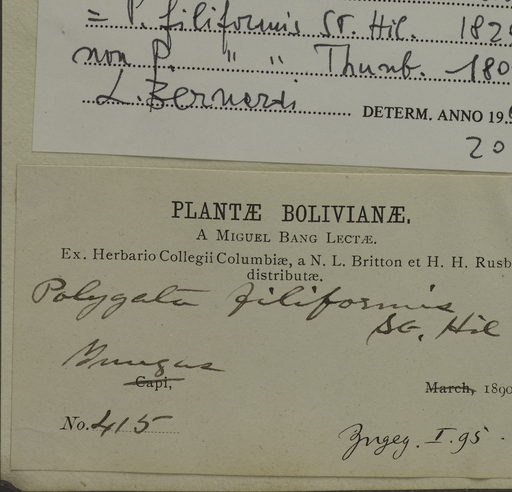 = P. filiformis St. Hil. 182
non P. " " Thunb. 180
L. Bernardi DETERM. ANNO 19
20
PLANTÆ BOLIVIANÆ.
A MIGUEL BANG LECTÆ.
Ex. Herbario Collegii Columbiæ, a N. L. Britton et H. H. Rusb
distributæ.
Polygala filiformis
St. Hil
Yungas
Capi,
March, 1890
No. 415
Zngeg. I. 95.